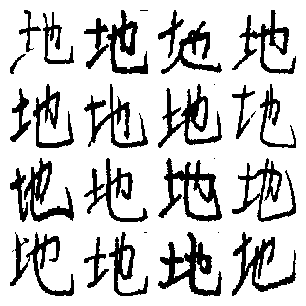 地地地地
地地地地
地地地地
地地地地